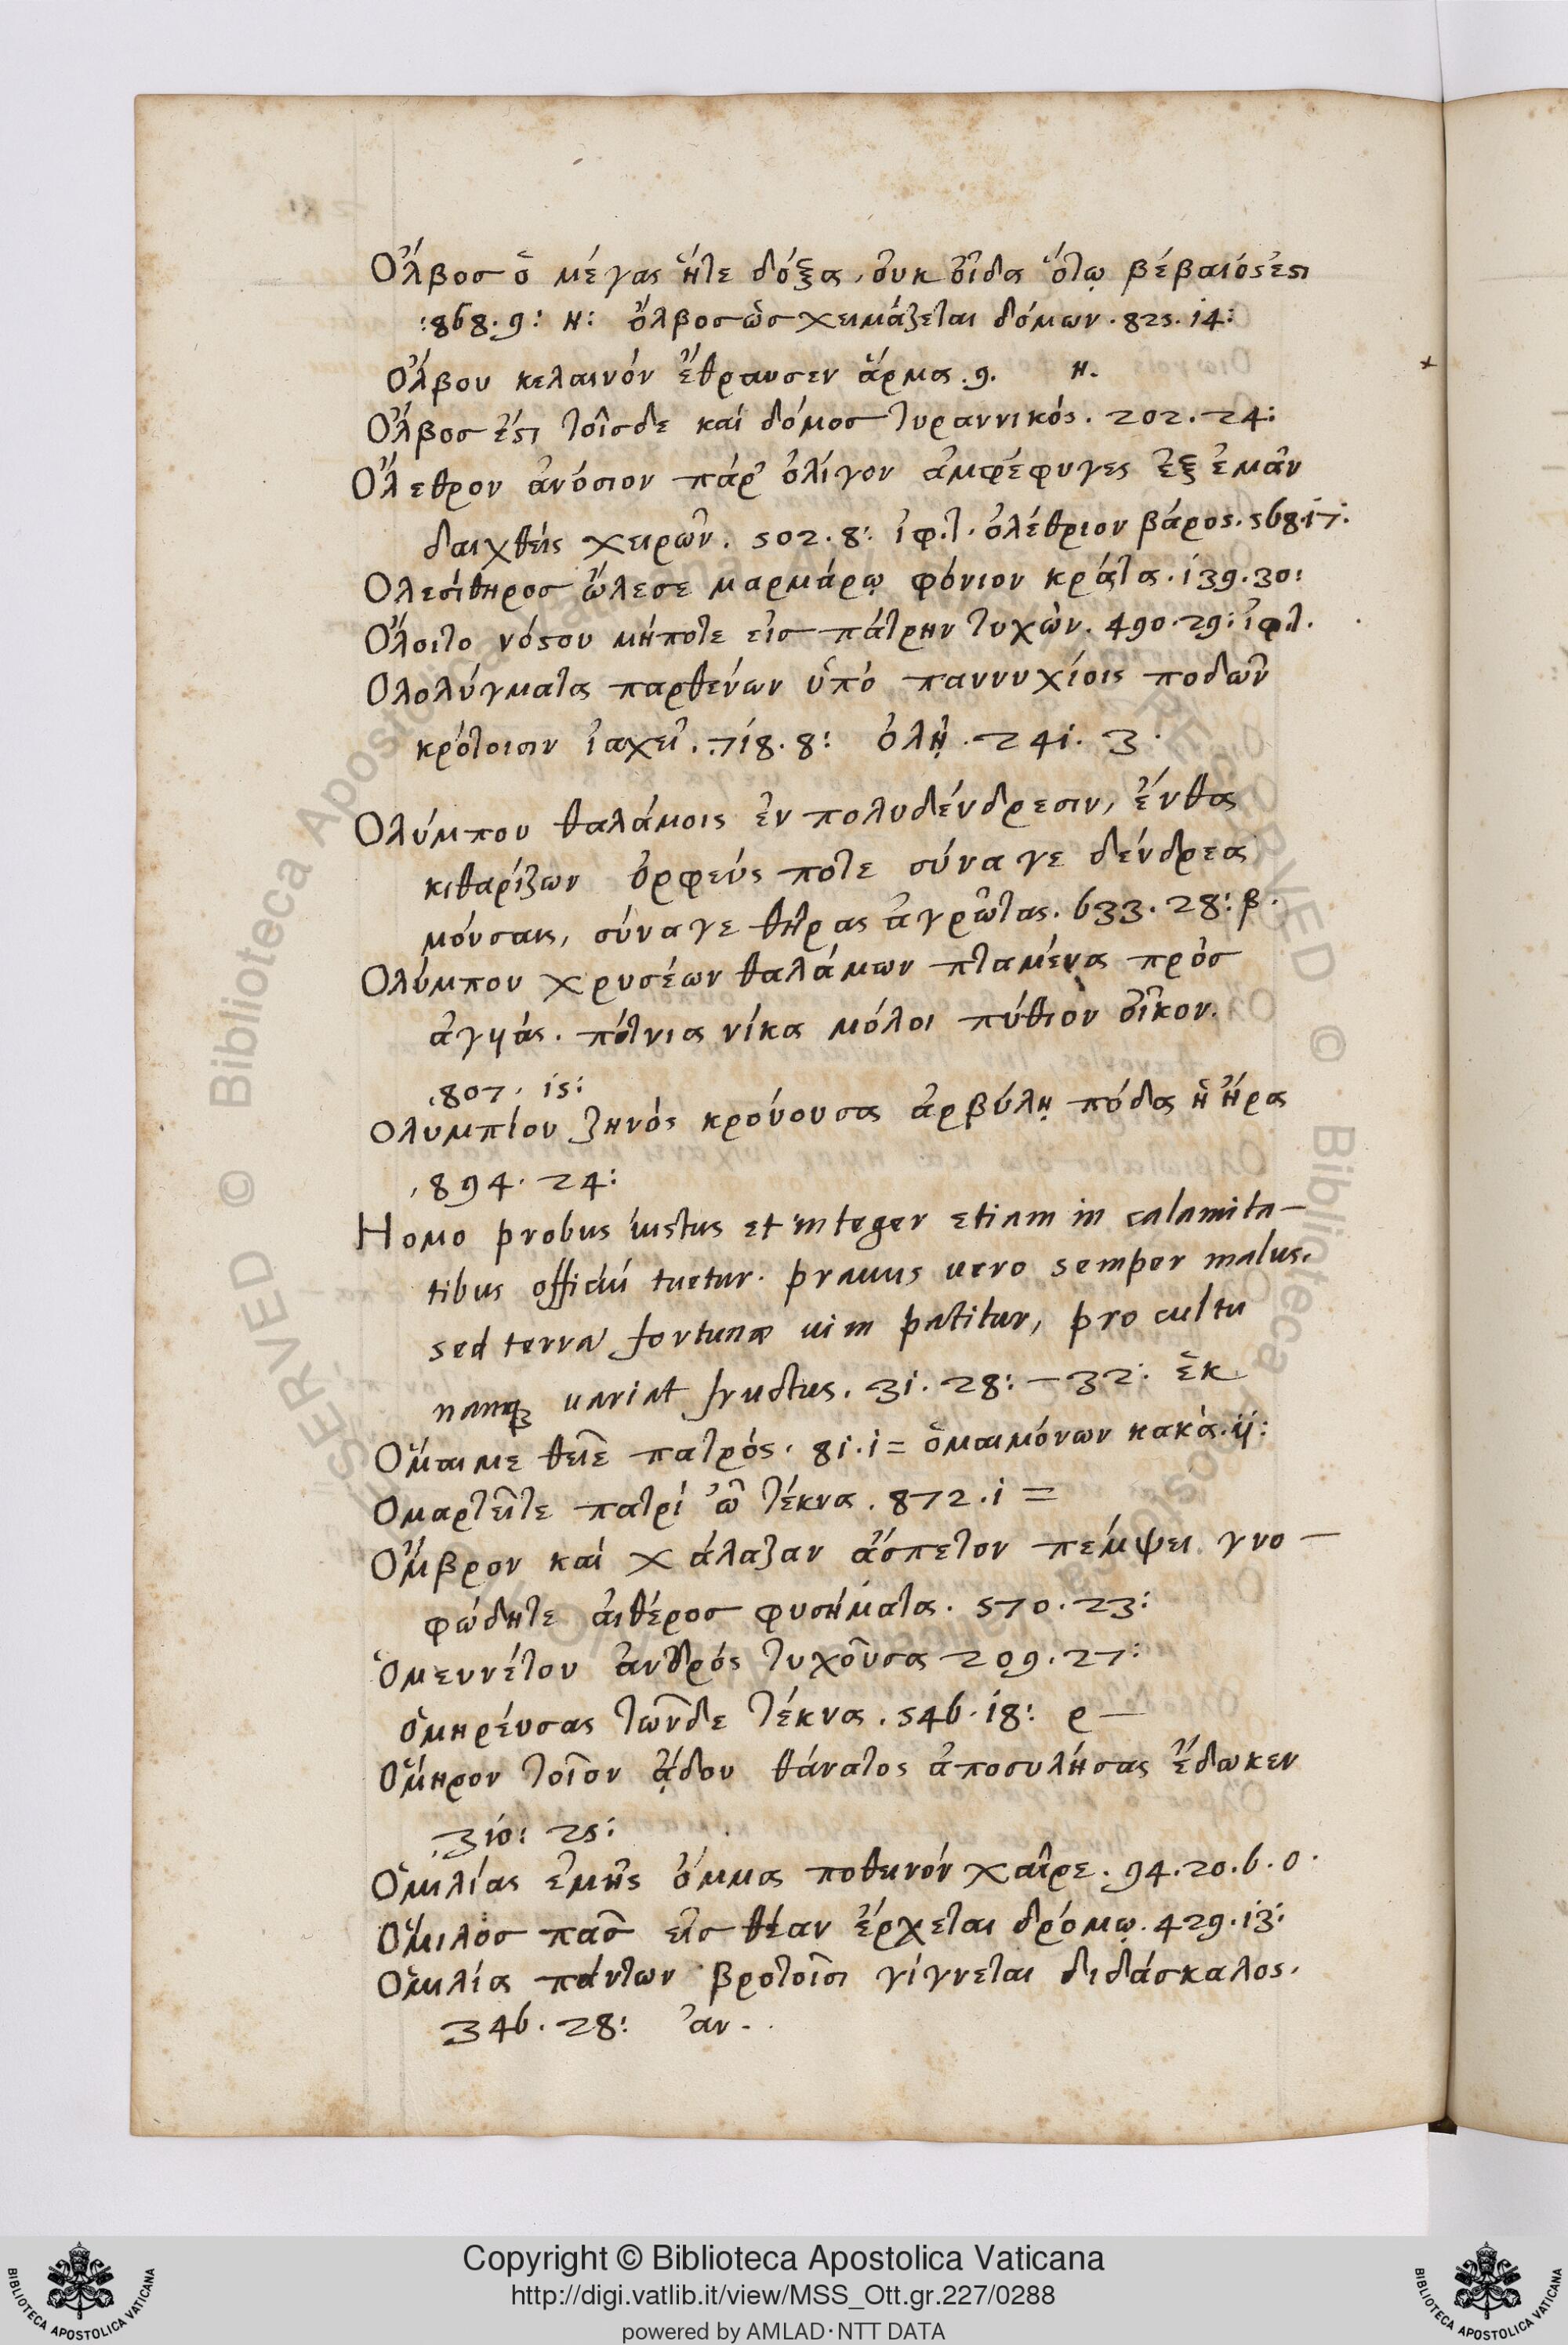 Ὄλβοσ ὁ μέγας ἥτε δόξα, οὐκ οἶδα ὅτῳ βέβαιός ἐστι
:868. 9: η: ὄλβοσ ὡσ χειμάζεται δόμων. 825. 14:
Ὄλβου κελαινόν ἔθραυσεν ἅρμα. 9. η.
Ὄλβοσ ἐστι τοῖσδε καί δόμοσ τυραννικός. 202. 24:
Ὄλεθρον ἀνόσιον πάρ ὀλίγον ἀμφέφυγες ἐξ ἐμᾶν
δαιχθείς χειρῶν. 502. 8: ἰφ.τ. ὀλέθριον βάρος. 568.17:
Ολεσίθηροσ ὤλεσε μαρμάρῳ φόνιον κράτα. 139. 30:
Ὄλοιτο νόσου μήποτε εἰσ πάτρην τυχών. 490. 29: ἰφ.τ.
Ολολύγματα παρθενων ὑπό παννυχίοις ποδῶν
κρότοισιν ἰαχεῖ. 718. 8: ὀλῇ. 241. 3.
Ολύμπου θαλάμοις ἐν πολυδένδρεσιν, ἔνθα
κιθαρίζων ὀρφεύς ποτε σύναγε δένδρεα
μούσαις, σύναγε θῆρας ἀγρώτας. 633. 28: β.
Ολύμπου χρυσέων θαλάμων πταμένα πρόσ
ἀγυιάς. πότνια νίκα μόλοι πύθιον οἶκον.
.807. 15:
ολυμπίου ζηνός κρούουσα ἀρβύλῃ πόδα ἡ ἥρα
,894. 24:
Homo probus iustus et integer etiam in calamita-
tibus officiū tuetur. prauus uero semper malus.
sed terra fortunæ uim patitur, pro cultu
namq; uariat fructus. 31. 28: - 32: ἑκ
Ὅμαιμε θεῖε πατρός. 81. 1 = ὁμαιμόνων κακά. ij:
Ομαρτεῖτε πατρί ὦ τέκνα. 872. 1 =
Ὄμβρον καί χάλαζαν ἄσπετον πέμψει γνο-
φώδητε αἰθέροσ φυσήματα. 570. 23:
Ὁμευνέτου ἀνδρός τυχοῦσα 209. 27:
ὁμηρεύσας τῶνδε τέκνα. 546. 18: ρ —
Ὅμηρον τοῖον ᾅδου θάνατος ἀποσυλήσας ἔδωκεν
,310: 25:
Ὁμιλίας ἐμῆς ὄμμα ποθεινόν χαῖρε. 94. 20. 6. 0.
Ὅμιλοσ πᾶσ εἰσ θέαν ἔρχεται δρόμῳ. 429. 13:
Ὁμιλία πάντων βροτοῖσι γίγνεται διδάσκαλος.
346. 28: ἀν.
Copyright © Biblioteca Apostolica Vaticana
http://digi.vatlib.it/view/MSS_Ott.gr.227/0288
powered by AMLAD·NTT DATA
BIBLIOTECA APOSTOLICA VATICANA
BIBLIOTECA APOSTOLICA VATICANA